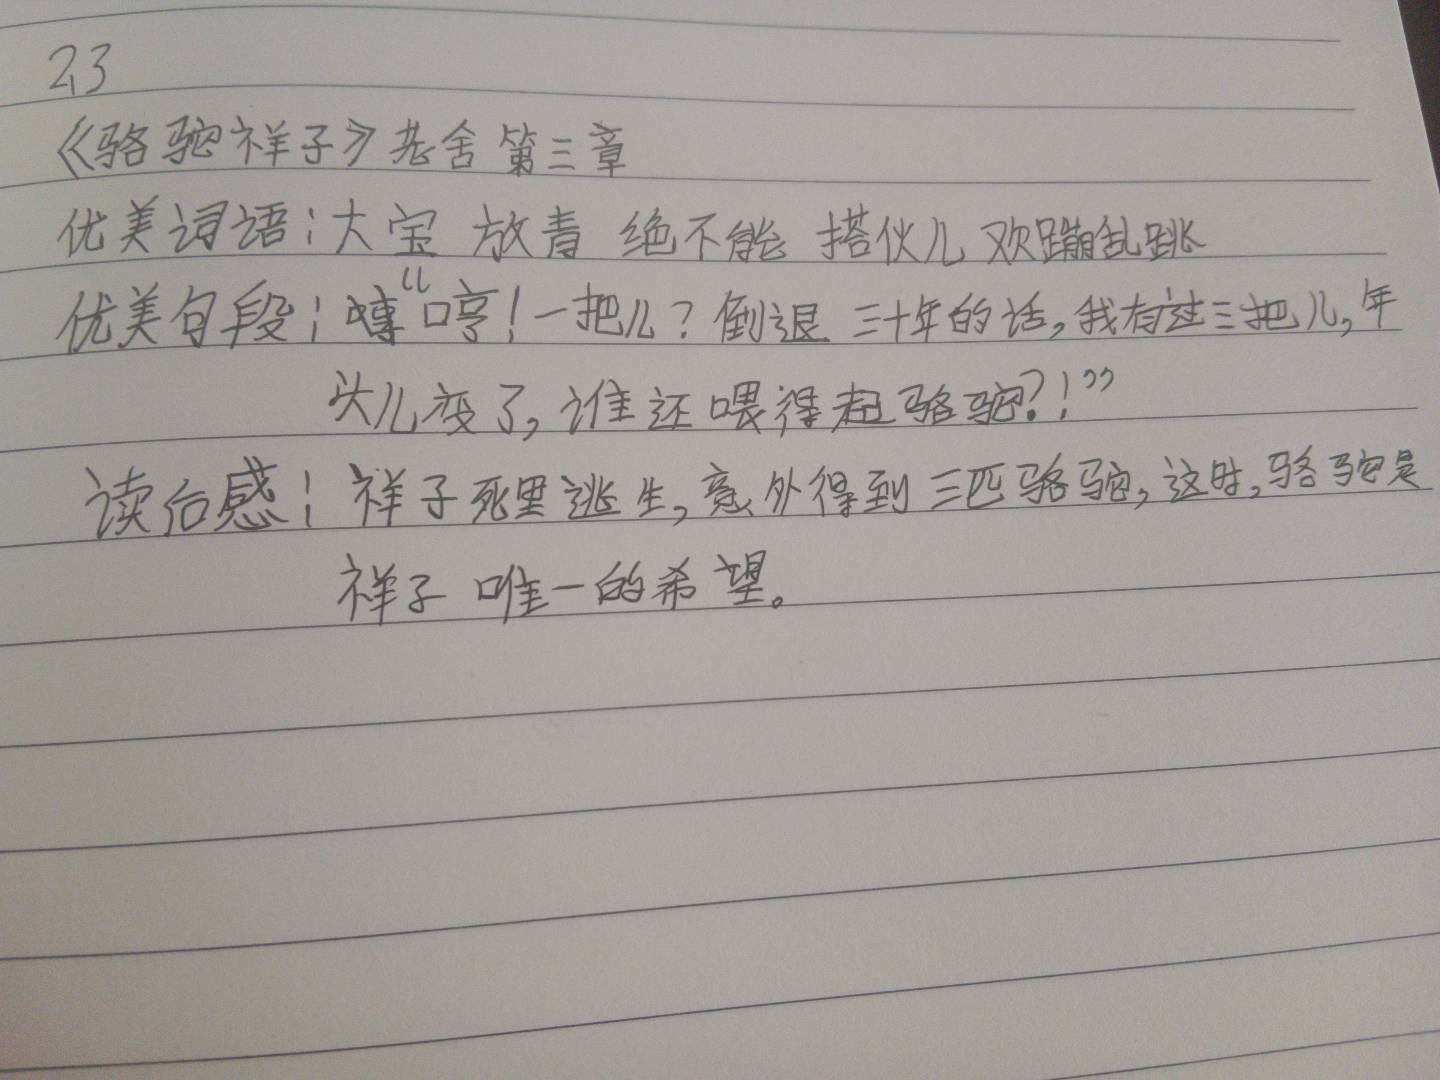 2,3
《骆驼祥子》老舍 第三章
优美词语：大宝 放青 绝不能 搭伙儿 欢蹦乱跳
优美句段：“哼！一把儿？倒退三十年的话，我有过三把儿，年
头儿变了，谁还喂得起骆驼？！”
读后感：祥子死里逃生，意外得到三匹骆驼，这时，骆驼是
祥子唯一的希望。